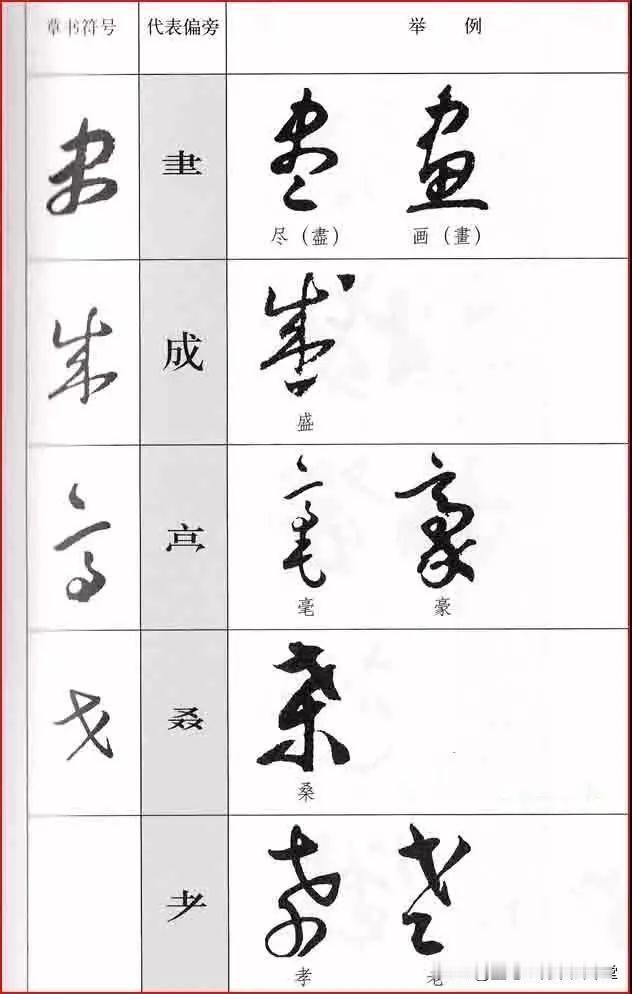 草书符号 代表偏旁 举例
⺻
尽（盡） 画（畫）
成
盛
毫 豪
叒
桑
耂
孝 老